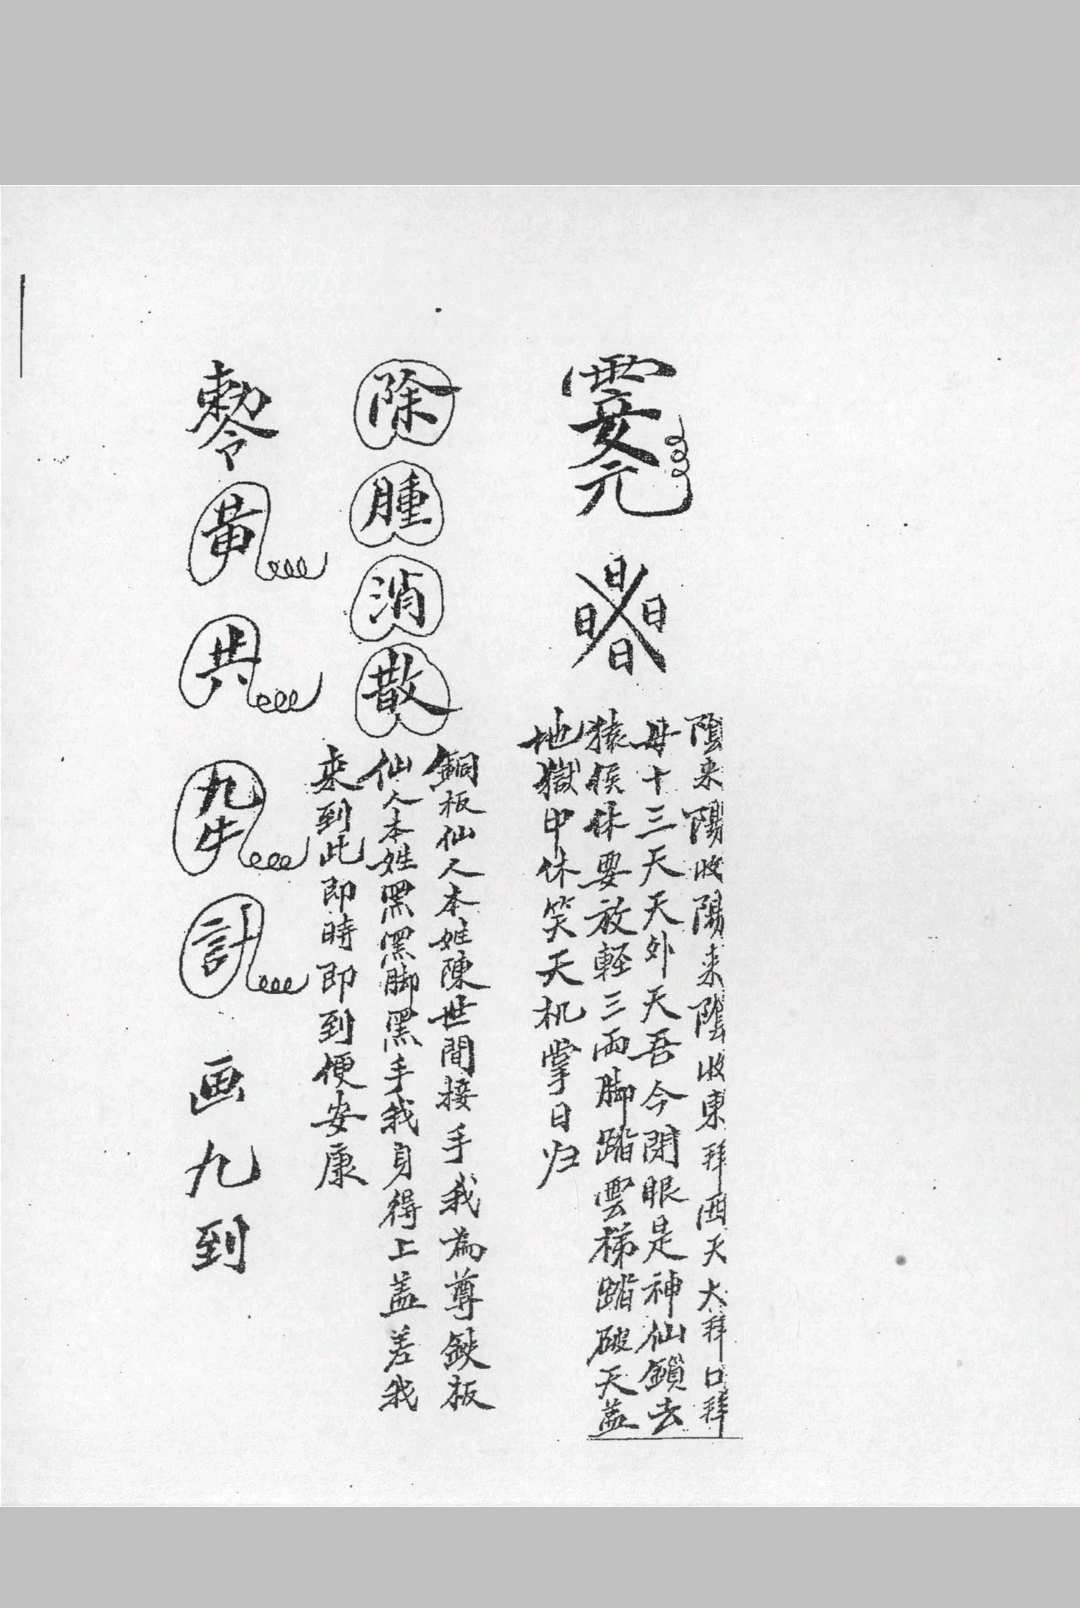 陰来陽收陽来陰收東拜西天大拜口拜
母十三天天外天吾今閉眼是神仙鎖去
猿猴休要放輕三両脚踏雲梯踏破天盖
地獄中休笑天机掌日归
除腫消散
銅板仙人本姓陳世間接手我為尊鉄板
仙人本姓黑黑脚黑手我身得上盖差我
来到此即時即到便安康
敕令
黃
共
九牛
計
画九到